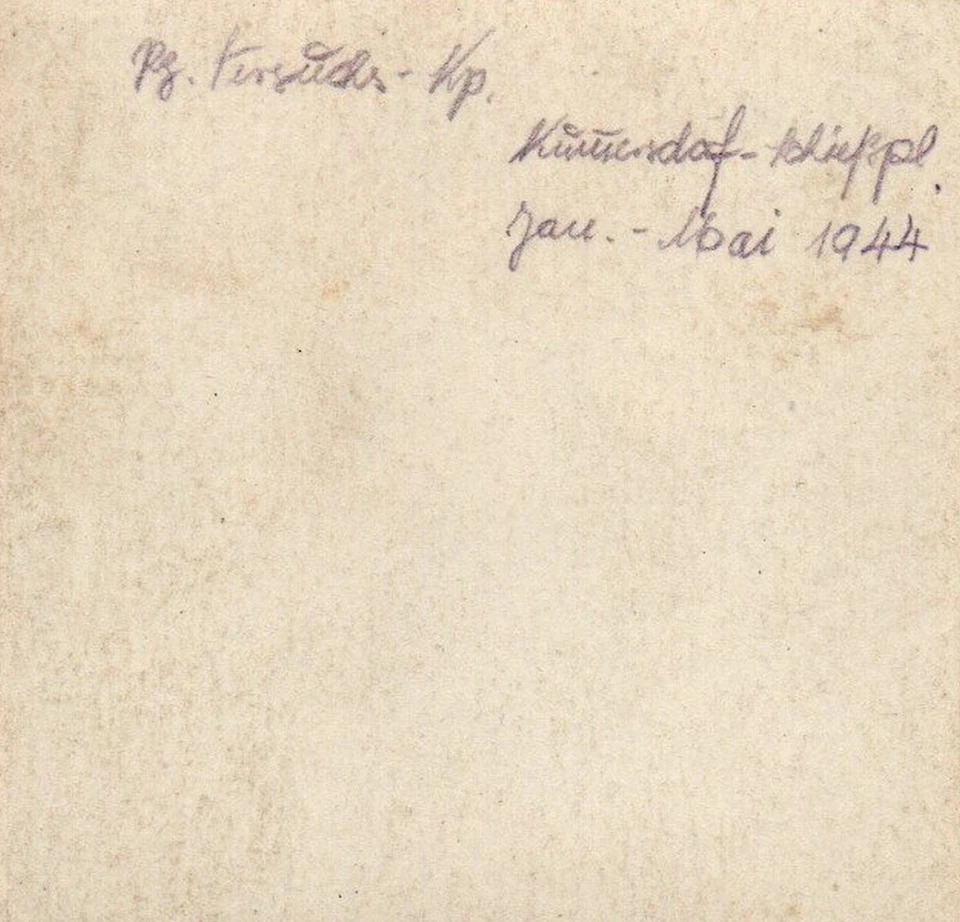 Pz. Versuchs-Kp.
Kummersdorf-Schießpl.
Jan. - Mai 1944